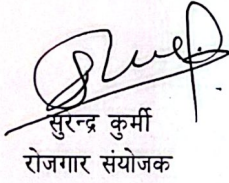 सुरेन्द्र कुर्मी
रोजगार संयोजक